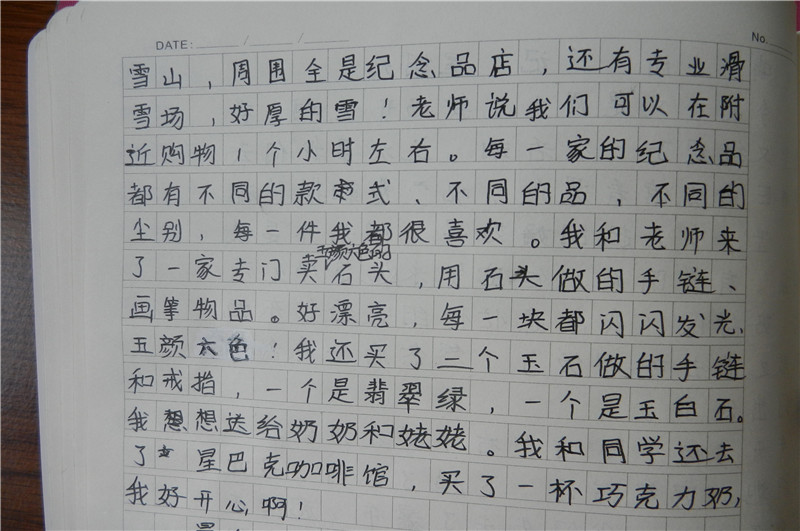 DATE: / /
No.
雪山，周围全是纪念品店，还有专业滑
雪场，好厚的雪！老师说我们可以在附
近购物1个小时左右。每一家的纪念品
都有不同的款式、不同的品，不同的
尘别，每一件我都很喜欢。我和老师来
五颜六色的
了一家专门卖石头，用石头做的手链、
画筆物品。好漂亮，每一块都闪闪发光，
五颜六色！我还买了二个玉石做的手链
和戒指，一个是翡翠绿，一个是玉白石。
我想想送给奶奶和姥姥。我和同学还去
了 星巴克咖啡馆，买了一杯巧克力奶，
我好开心啊！